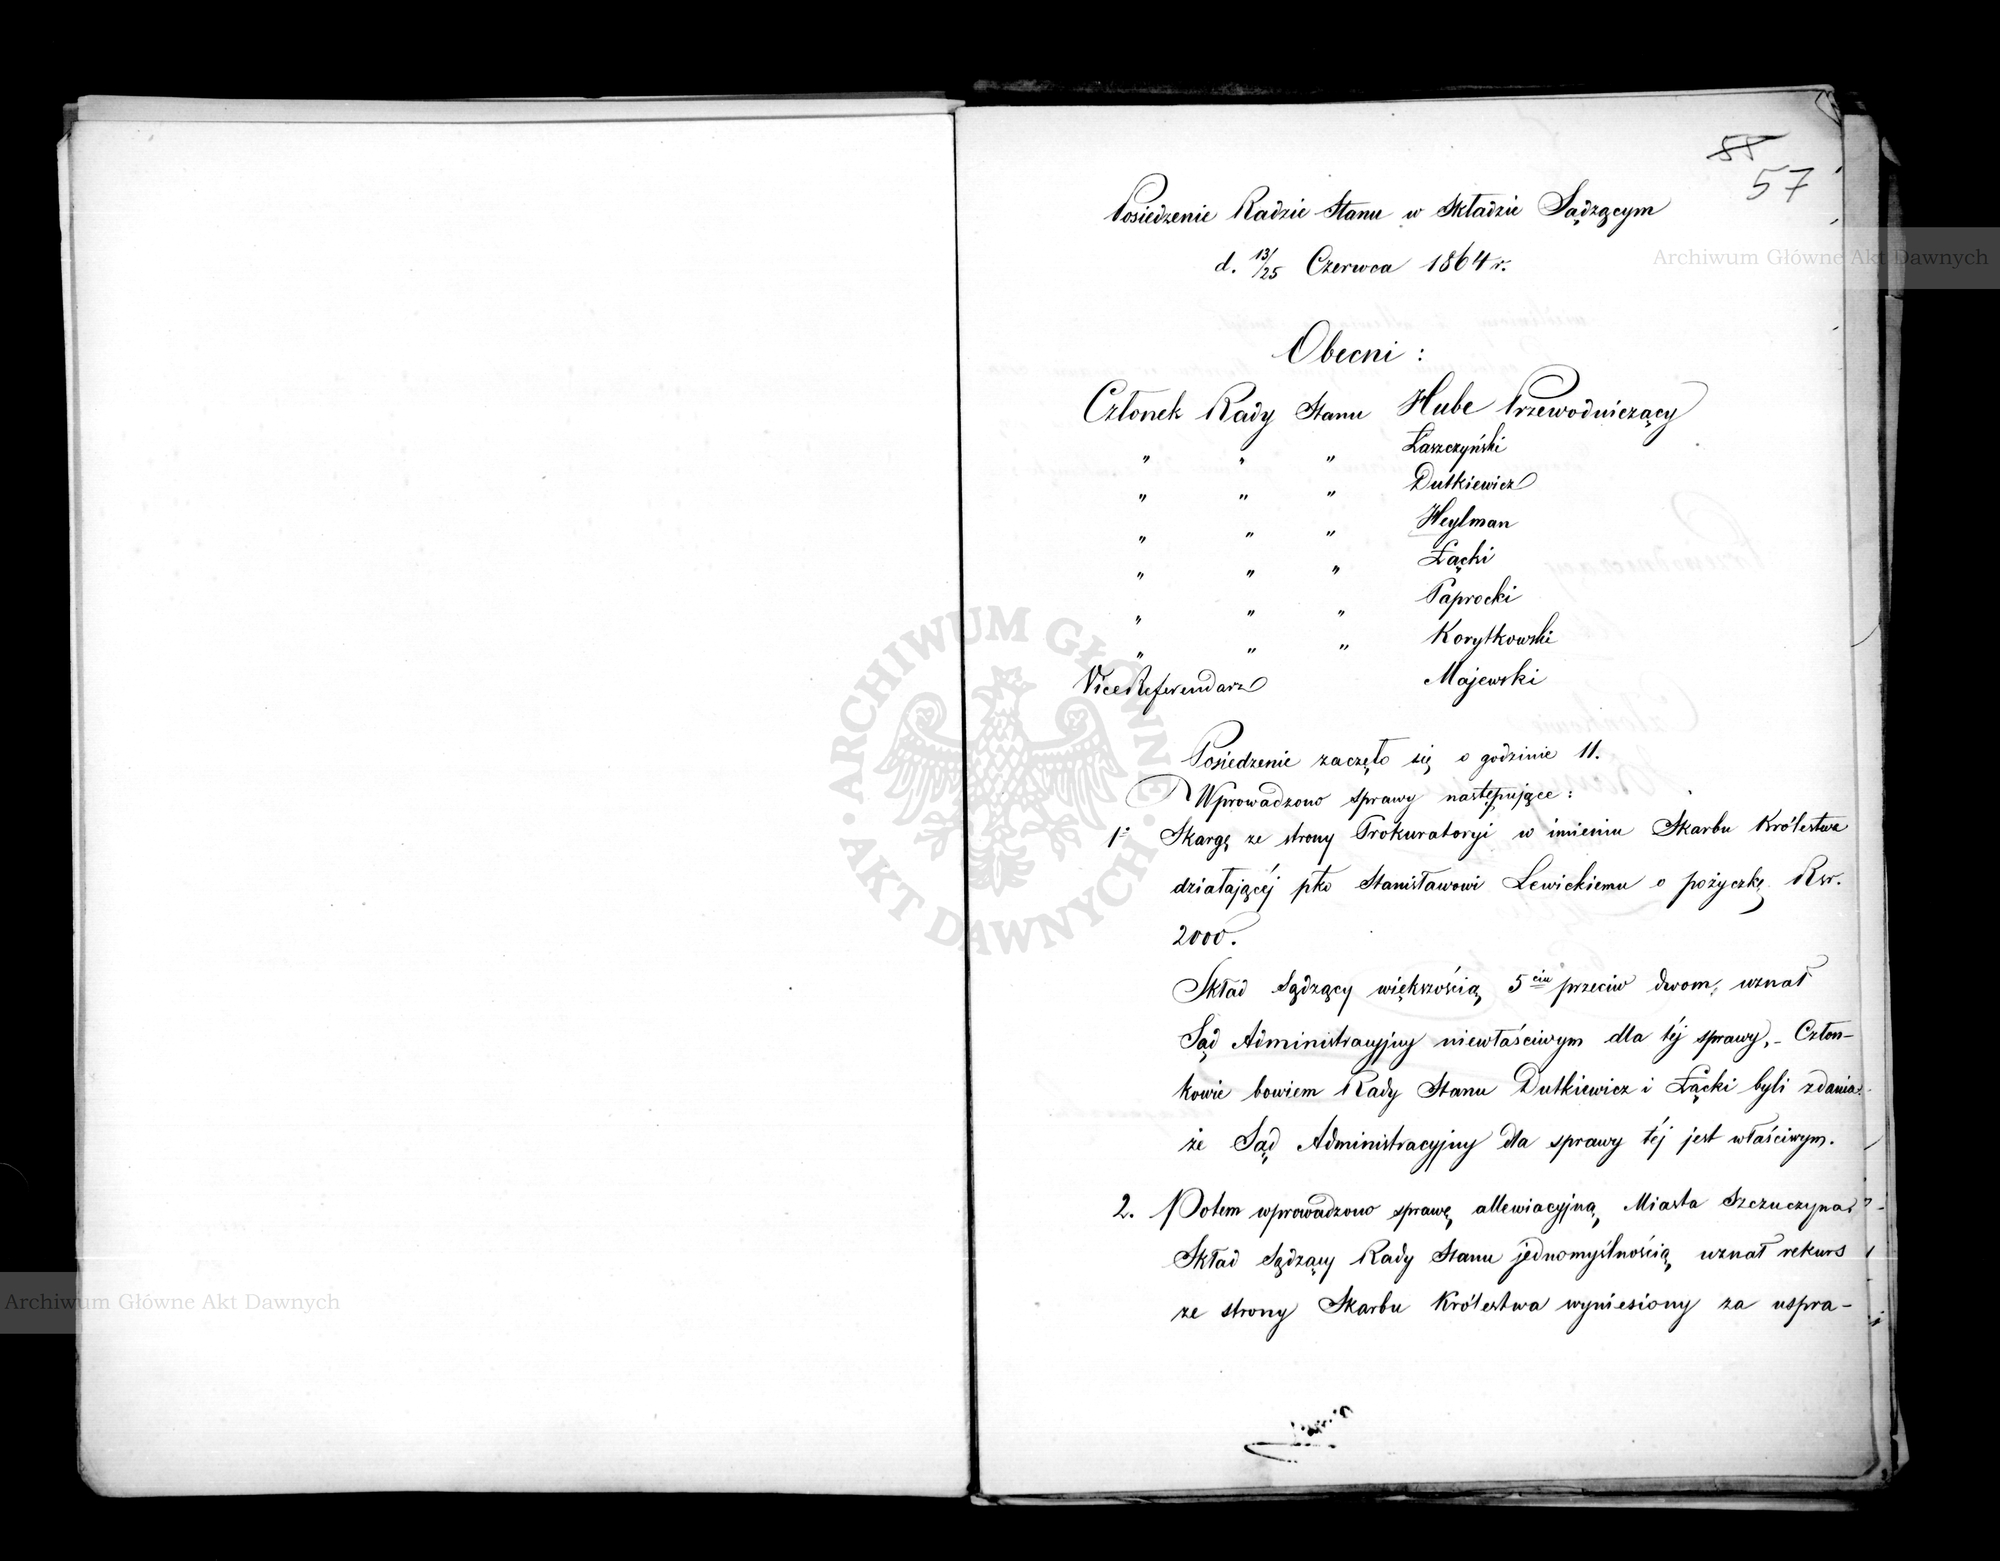 58
57
Posiedzenie Radzie Stanu w Składzie Sądzącym
d. 13/25 Czerwca 1864 r.
Obecni :
Członek Rady Stanu Hube Przewodniczący
" " " Łaszczyński
" " " Dutkiewicz
" " " Heylman
" " " Łącki
" " " Paprocki
" " " Korytkowski
ViceReferendarz Majewski
Posiedzenie zaczęło się o godzinie 11.
Wprowadzono sprawy następujące :
1° Skargę ze strony Prokuratoryi w imieniu Skarbu Królestwa
działającéj pko Stanisławowi Lewickiemu o pożyczkę Rsr.
2000.
Skład Sądzący większością 5ciu przeciw dwom, uznał
Sąd Administracyjny niewłaściwym dla téj sprawy. – Człon-
kowie bowiem Rady Stanu Dutkiewicz i Łącki byli zdania
że Sąd Administracyjny dla sprawy téj jest właściwym.
2. Potem wprowadzono sprawę allewiacyjną Miasta Szczuczyna
Skład Sądzący Rady Stanu jednomyślnością uznał rekurs
ze strony Skarbu Królestwa wyniesiony za uspra-
Archiwum Główne Akt Dawnych
Archiwum Główne Akt Dawnych
ARCHIWUM GŁÓWNE AKT DAWNYCH